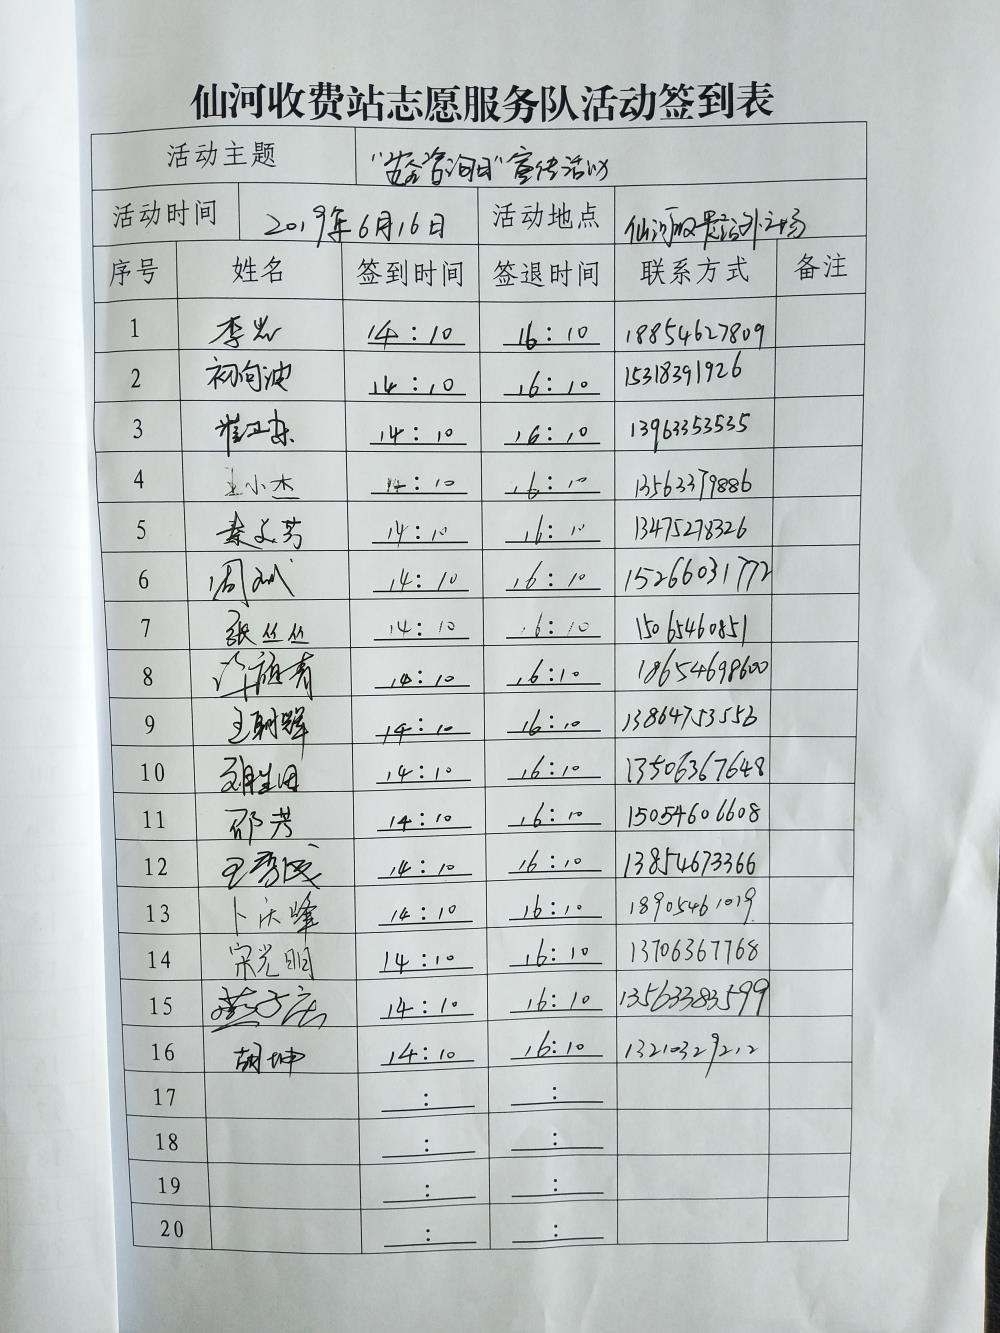 仙河收费站志愿服务队活动签到表
活动主题 "安全咨询日"宣传活动
活动时间 2019年6月16日 活动地点 仙河收费站外广场
序号 姓名 签到时间 签退时间 联系方式 备注
1 李 14:10 16:10 18854627809
2 初向波 14:10 16:10 15318391926
3 崔卫东 14:10 16:10 13963353535
4 王小杰 14:10 16:10 13563379886
5 秦文芳 14:10 16:10 13475278326
6 周斌 14:10 16:10 15266031772
7 张丛丛 14:10 16:10 15065460851
8 青 14:10 16:10 18654698600
9 王朝辉 14:10 16:10 13864753556
10 14:10 16:10 13506367648
11 邵芳 14:10 16:10 15054606608
12 王秀 14:10 16:10 13854673366
13 卜庆峰 14:10 16:10 18905461019
14 宋光明 14:10 16:10 13706367768
15 燕子 14:10 16:10 13563383599
16 胡坤 14:10 16:10 13210329212
17 : :
18 : :
19 : :
20 : :